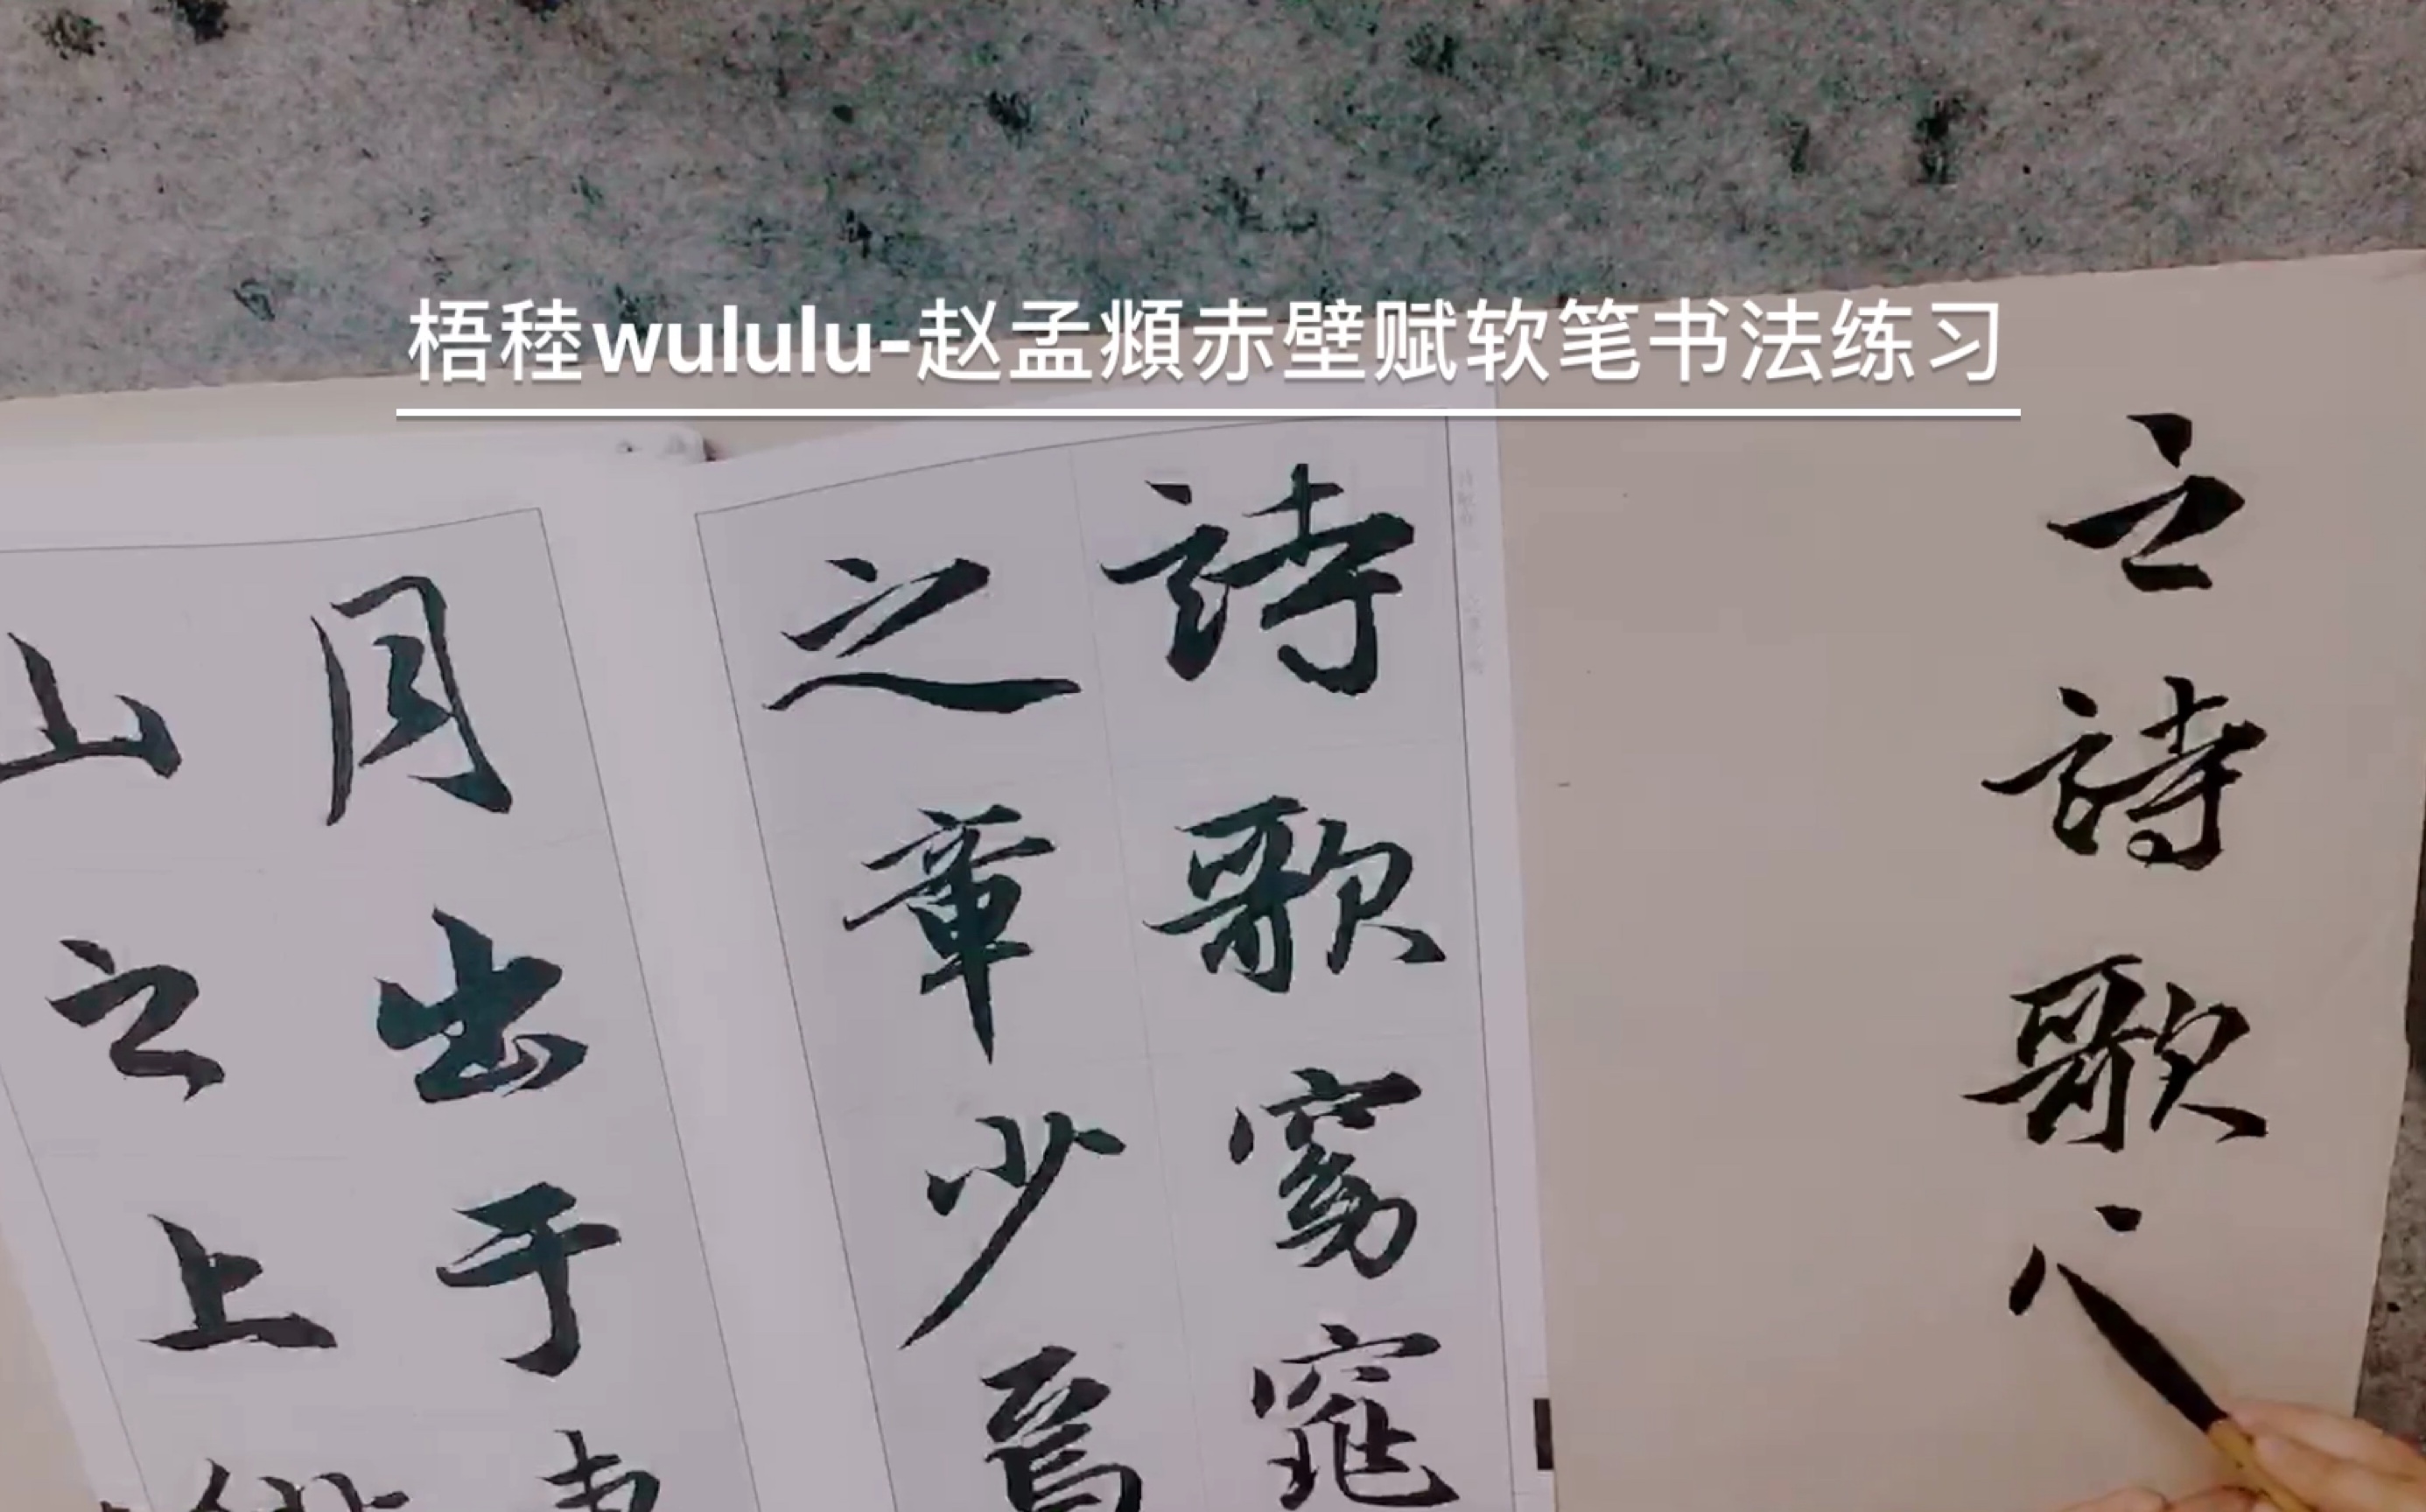 梧稑wululu-赵孟頫赤壁赋软笔书法练习
之詩歌
詩歌窈窕
之章少焉
月出于
山之上